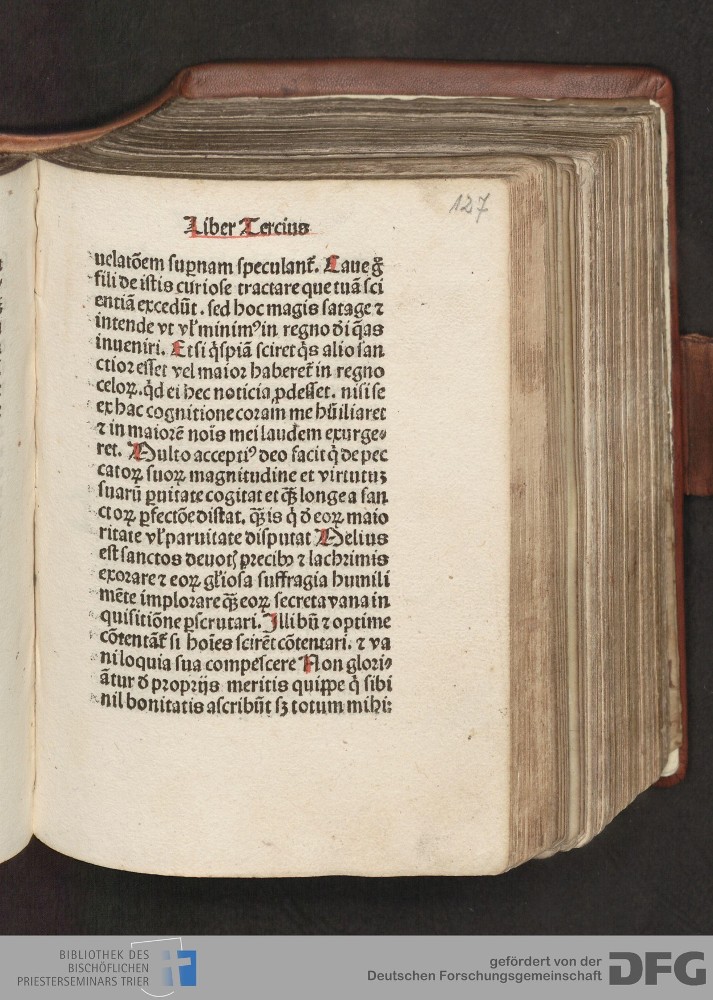 127
Liber Tercius
uelatõem suꝑnam speculanť. Caue g̃
fili de istis curiose tractare que tuã sci
entiã excedũt. sed hoc magis satage ⁊
intende vt vľ minimꝰ in regno d̄i q̃as
inueniri. Et si q̇spiã sciret q̇s alio san
ctior esset vel maior haberet̃ in regno
celoꝝ. q̇d ei hec noticia ꝓdesset. nisi se
ex hac cognitione coram me hũiliaret
⁊ in maiorẽ nois mei laudem exurge⸗
ret. Multo acceptiꝰ deo facit q̇ de pec
catoꝝ suoꝝ magnitudine et virtutuꝫ
suarũ ꝑuitate cogitat et qꝫ̃ longe a san
ctoꝝ ꝑfectõe distat. qꝫ̃ is q̇ d̄ eoꝝ maio
ritate vľ paruitate disputat Melius
est sanctos deuotꝭ precibꝰ ⁊ lachrimis
exorare ⁊ eoꝝ gľiosa suffragia humili
mẽte implorare qꝫ̃ eoꝝ secreta vana in
quisitiõne ꝑscrutari. Illi bñ ⁊ optime
cõtentãť si hoĩes scirẽt cõtentari. ⁊ va
niloquia sua compescere Non glori⸗
ãtur d̄ proprijs meritis quippe q̇ sibi
nil bonitatis ascribũt sꝫ totum mihi:
BIBLIOTHEK DES
BISCHÖFLICHEN
PRIESTERSEMINARS TRIER
gefördert von der
Deutschen Forschungsgemeinschaft DFG